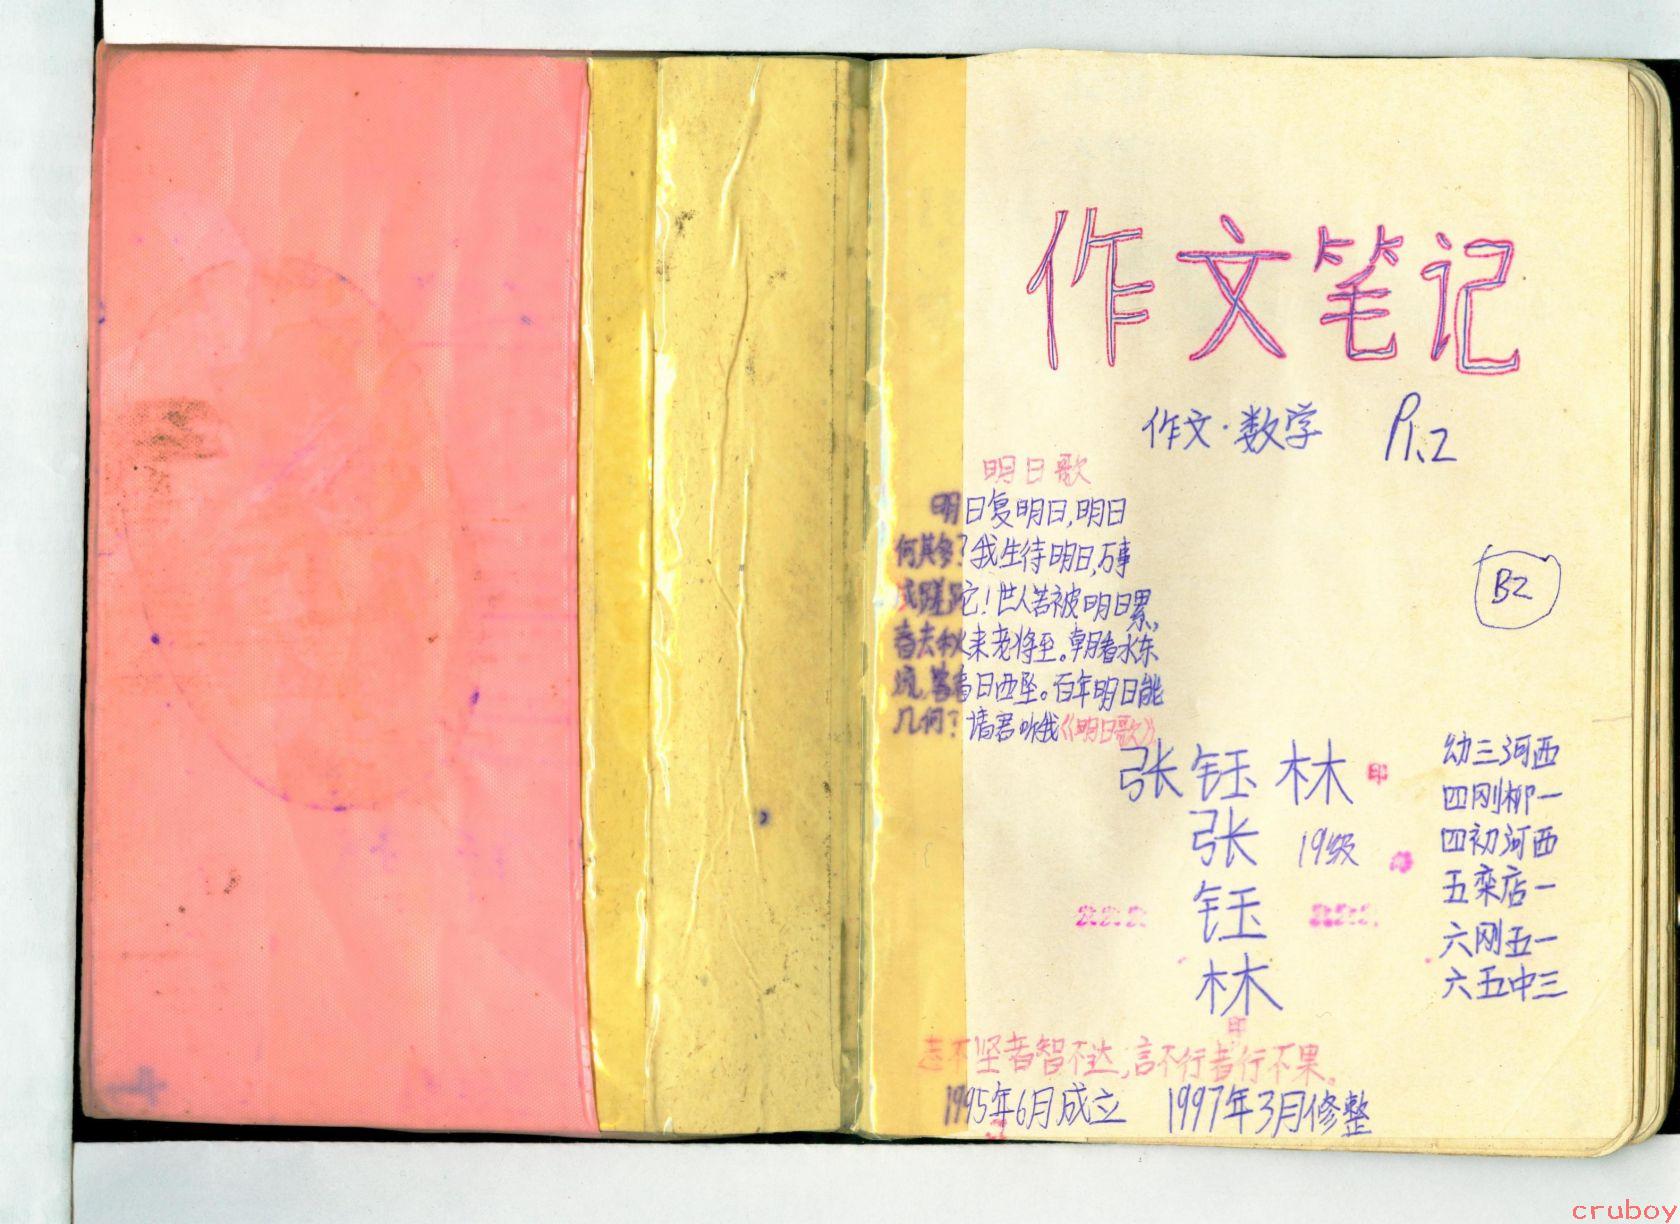 作文笔记
作文·数学 P1、2
明日歌
明日复明日,明日
何其多?我生待明日,万事
成蹉跎!世人若被明日累,
春去秋来老将至。朝看水东
流,暮看日西坠。百年明日能
几何?请君听我《明日歌》
B2
张钰林 印
张 19级
钰
林
印
幼三河西
四刚柳一
四初河西
五栾店一
六刚五一
六五中三
志不坚者智不达,言不行者行不果。
1995年6月成立 1997年3月修整
cruboy